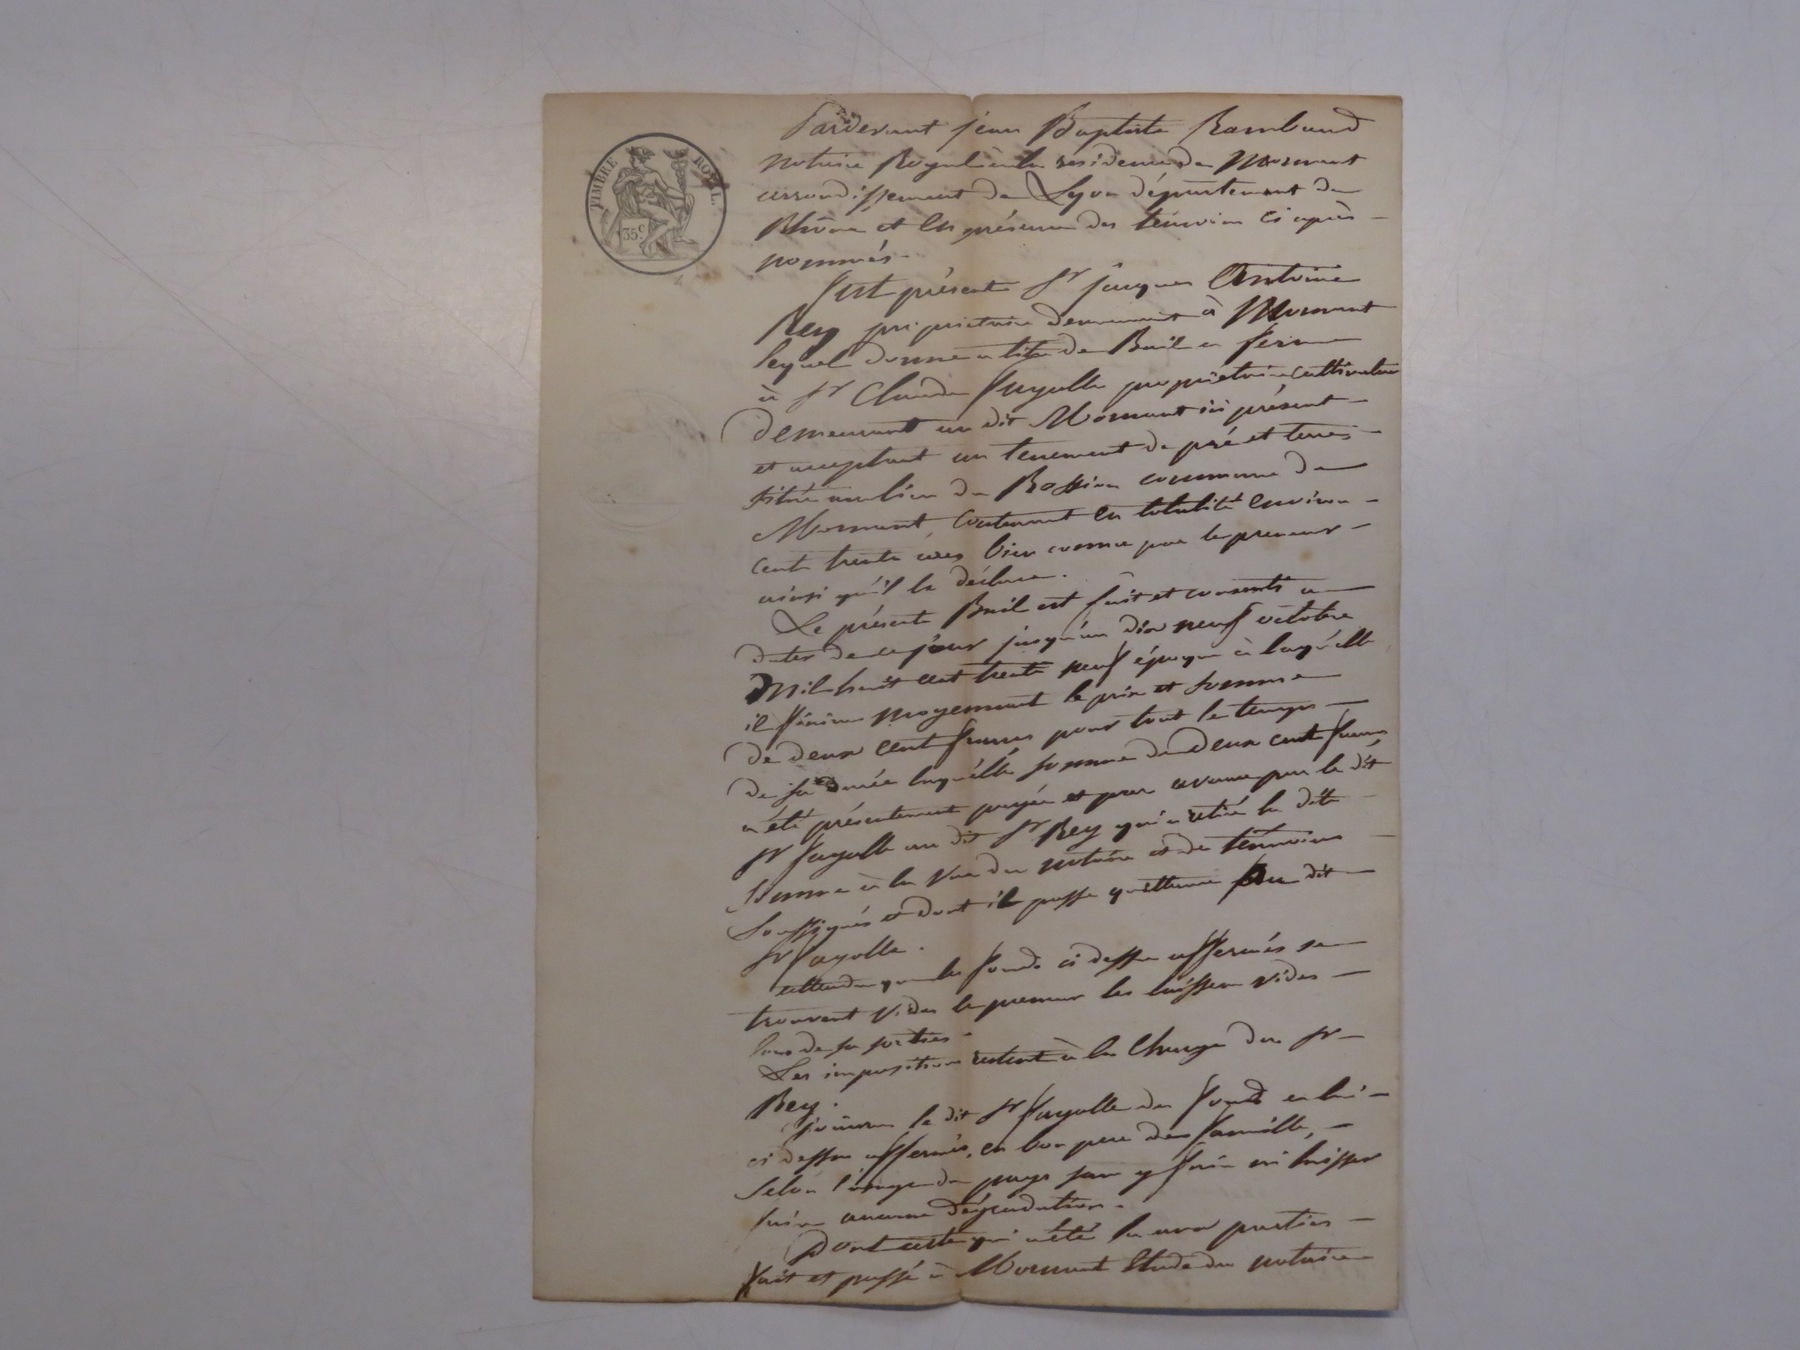 TIMBRE ROYAL.
35c
Pardevant jean Baptiste Rambaud
notaire Royal à la residence de Mornant
arrondissement de Lyon département du
Rhône et en présence des témoins ci après
nommés.
fut présent Sr jacques Antoine
Rey propriétaire demeurant à Mornant
lequel donne a titre de Bail a ferme
à Sr Claude fayolle propriétaire cultivateur
demeurant au dit Mornant ici présent
et acceptant un tenement de pré et terres
situé au lieu du commune de
Mornant, contenant en totalité environ
cent trente ares bien connu par le preneur
ainsi qu'il le déclare.
Le présent Bail est fait et consenti a
dater de ce jour jusqu'au dix neuf octobre
Mil huit cent trente neuf époque à laquelle
il finira moyennant le prix et somme
de deux cent francs pour tout le temps
de sa durée laquelle somme de deux cent francs
a été présentement payée et par avance par le dit
Sr fayolle au dit Sr Rey qui a retiré la dite
somme à la vue du notaire et de témoins
soussignés et dont il passe quittance au dit
Sr fayolle.
attendu que les fonds ci dessus affermés se
trouvent vides le preneur les laissera vides
lors de sa sortie.
Les impositions restent à la charge du Sr
Rey.
jouira le dit Sr fayolle du fonds a lui
ci dessus affermé, en bon pere de famille,
selon l'usage du pays sans y faire ni laisser
faire aucune dégradation.
Dont acte qui a été lu aux parties
fait et passé à Mornant Etude du notaire